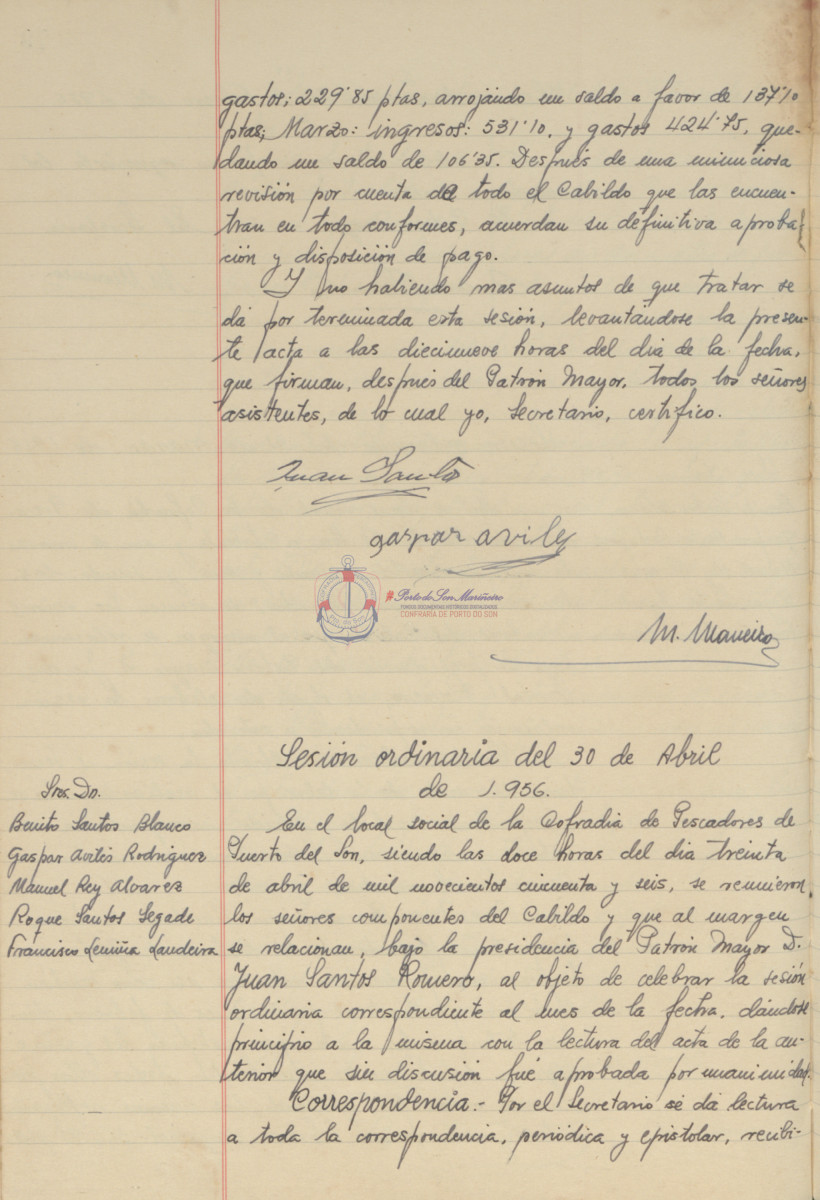 gastos; 229'85 ptas, arrojando un saldo a favor de 137'10
ptas; Marzo: ingresos: 531'10, y gastos 424'75, que-
dando un saldo de 106'35. Después de una minuciosa
revisión por cuenta de todo el Cabildo que las encuen-
tran en todo conformes, acuerdan su definitiva aproba-
ción y disposición de pago.
Y no habiendo mas asuntos de que tratar se
dá por terminada esta sesión, levantándose la presen-
te acta a las diecinueve horas del dia de la fecha,
que firman, después del Patrón Mayor, todos los señores
asistentes, de lo cual yo, Secretario, certifico.
Juan Santos
gaspar aviles
M. Maneiro
#PortodoSonMariñeiro
FONDOS DOCUMENTAIS HISTÓRICOS DIXITALIZADOS
CONFRARÍA DE PORTO DO SON
Sesión ordinaria del 30 de Abril
de 1.956.
Sres. Dn.
Benito Santos Blanco
Gaspar Avilés Rodriguez
Manuel Rey Alvarez
Roque Santos Segade
Francisco Lemiña Landeira
En el local social de la Cofradia de Pescadores de
Puerto del Son, siendo las doce horas del dia treinta
de abril de mil novecientos cincuenta y seis, se reunieron
los señores componentes del Cabildo y que al margen
se relacionan, bajo la presidencia del Patrón Mayor D.
Juan Santos Romero, al objeto de celebrar la sesión
ordinaria correspondiente al mes de la fecha, dándose
principio a la misma con la lectura del acta de la an-
terior que sin discusión fué aprobada por unanimidad.
Correspondencia.- Por el Secretario se dá lectura
a toda la correspondencia, periódica y epistolar, recibi-